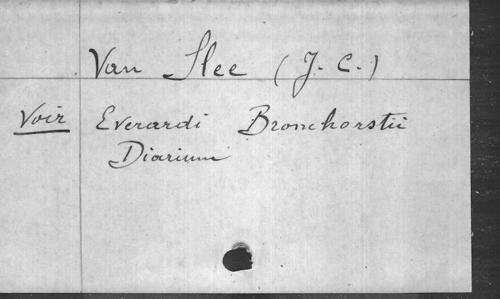 Van Slee (J. C.)
Voir Everardi Bronchorstii
Diarium